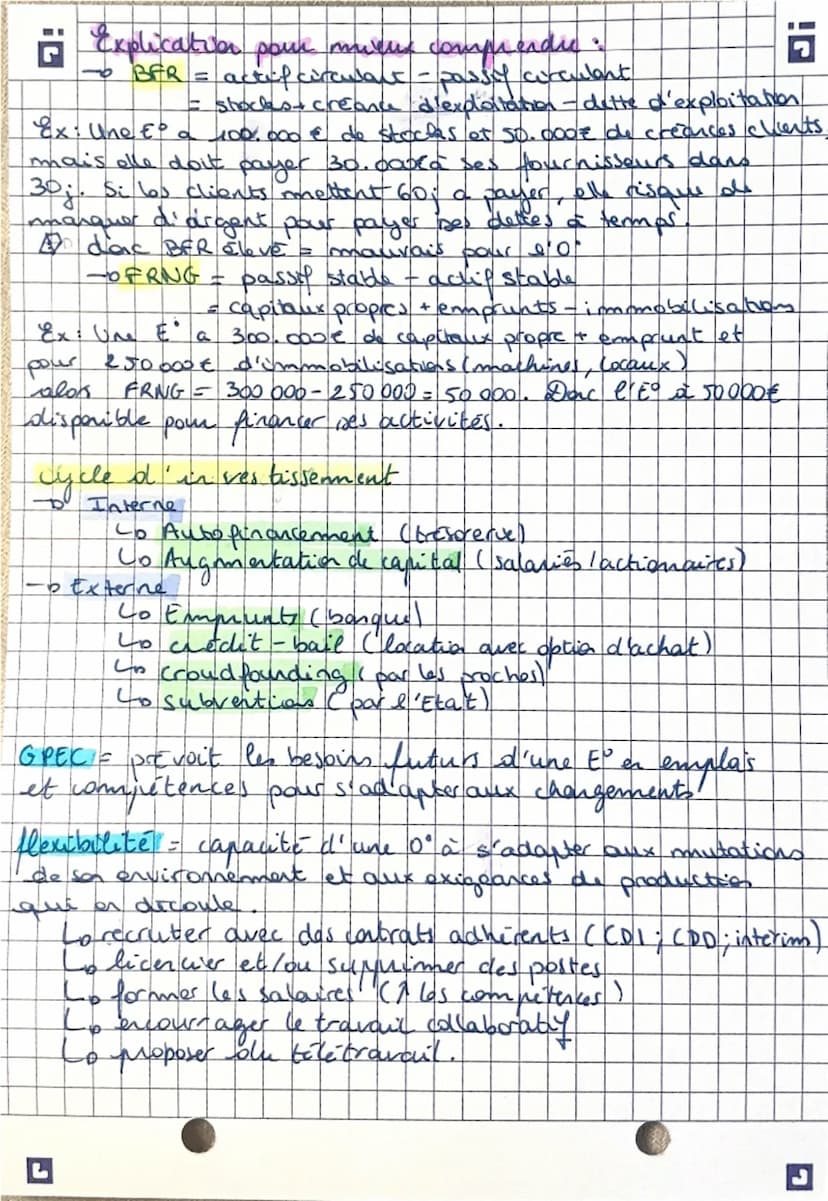 Explication pour mieux comprendre :
→ BFR = actif circulant - passif circulant
= stocks + créance d'exploitation - dette d'exploitation
Ex : Une E° a 100.000 € de stocks et 50.000€ de créances clients,
mais elle doit payer 30.000€ à ses fournisseurs dans
30j. Si les clients mettent 60j à payer, elle risque de
manquer d'argent pour payer ses dettes à temps.
donc BFR élevé = mauvais pour l'O°
→ FRNG = passif stable - actif stable
= capitaux propres + emprunts - immobilisation
Ex : Une E° a 300.000€ de capitaux propre + emprunt et
pour 250 000 € d'immobilisations (machines, locaux)
alors FRNG = 300 000 - 250 000 = 50 000. Donc l'E° à 50 000€
disponible pour financer ses activités.
cycle d'investissement
→ Interne
↳ Autofinancement (trésorerie)
↳ Augmentation de capital (salariés / actionnaires)
→ Externe
↳ Emprunts (banque)
↳ crédit-bail (location avec option d'achat)
↳ croudfounding (par les proches)
↳ subventions (par l'Etat)
GPEC = prévoit les besoins futurs d'une E° en emplois
et compétences pour s'adapter aux changements
flexibilité = capacité d'une O° à s'adapter aux mutations
de son environnement et aux exigeances de production
qui en découle.
↳ recruter avec des contrats adhérents (CDI ; CDD ; interim)
↳ licencier et/ou supprimer des postes
↳ former les salaires (↑ les compétences)
↳ encourager le travail collaboratif
↳ proposer du télétravail.